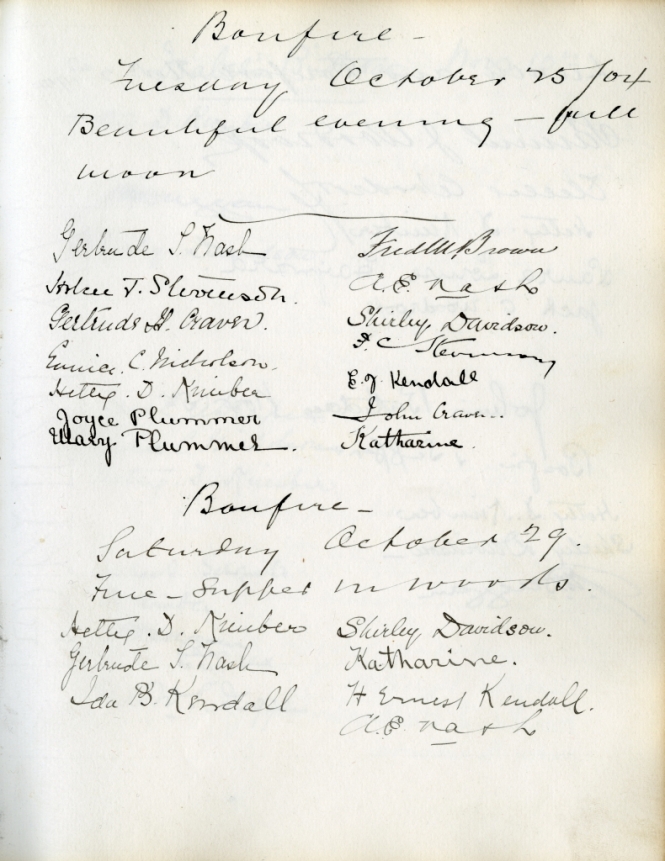 Bonfire -
Tuesday October 25/04
Beautiful evening - full
moon
Gertrude S. Nash
T. Stevenson.
Gertrude H. Craven.
Eunice C. Nicholson.
Hettie D. Kimber
Joyce Plummer
Mary Plummer.
Fred M Brown
A.E. Nash
Shirley Davidson.
E. J. Kendall
John Craven..
Katharine.
Bonfire -
Saturday October 29.
Fine - Supper in woods.
Hettie D. Kimber
Gertrude S. Nash
Ida B. Kendall
Shirley Davidson.
Katharine.
H Ernest Kendall.
A.E. Nash